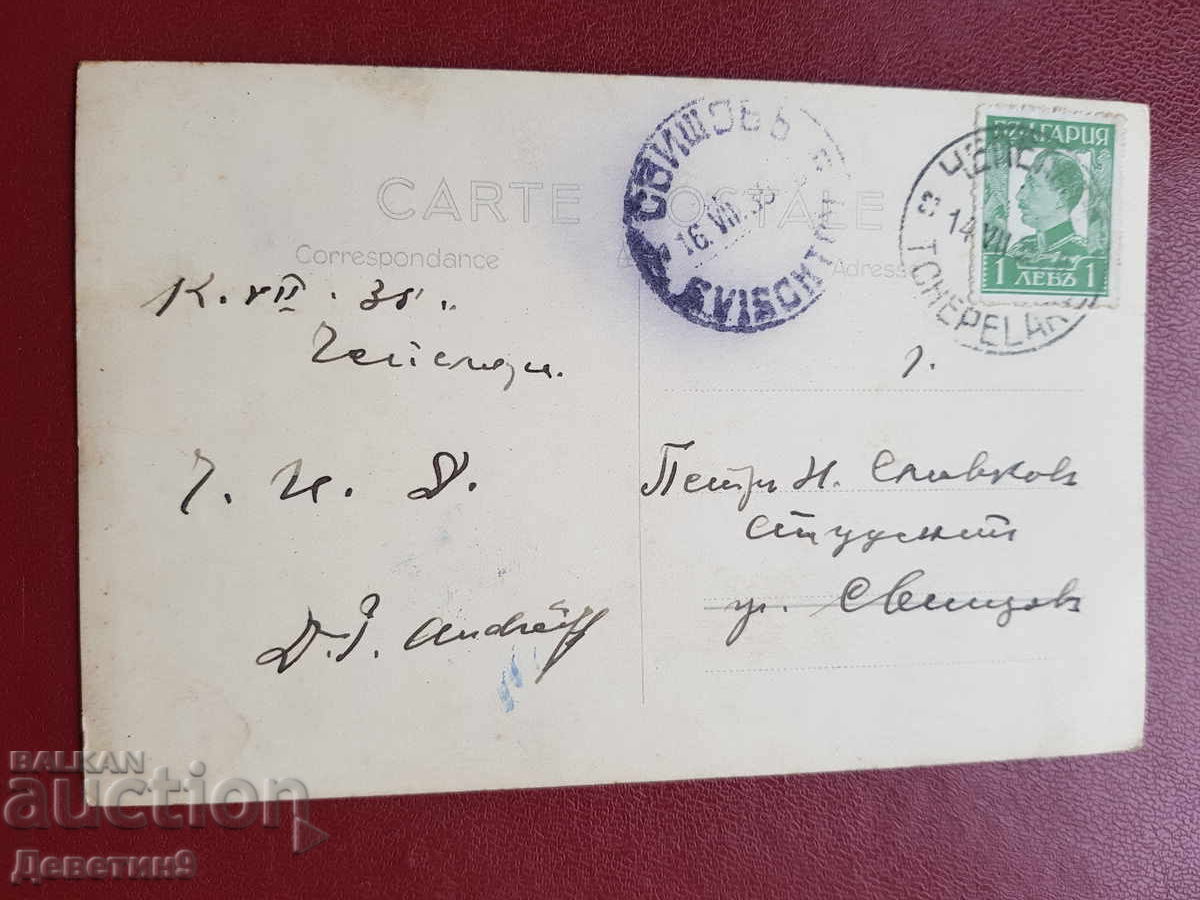 CARTE POSTALE
Correspondance
Adresse
СВИЩОВЪ
16.VII.35
SVISCHTOV
14.VII
TCHEPELAR
БЪЛГАРИЯ
1 ЛЕВЪ 1
К. VII. 35.
Ч. И. Д.
D. P. Andréeff
Петър Н. Славков
студент
гр. Свищов
BALKAN
auction
Деветин9